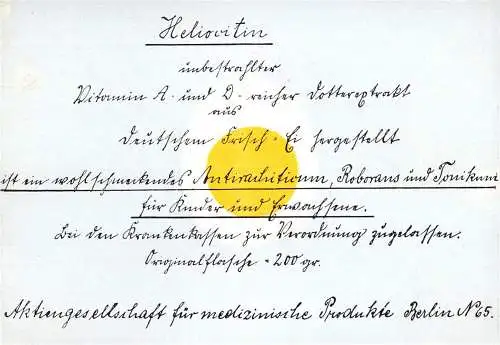 Heliovitin
unbestrahlter
Vitamin A- und D-reicher Dotterextrakt
aus
Deutschem Frisch-Ei hergestellt
ist ein wohlschmeckendes Antirachiticum, Roborans und Tonikum
für Kinder und Erwachsene.
Bei den Krankenkassen zur Verordnung zugelassen.
Originalflasche = 200 gr.
Aktiengesellschaft für medizinische Produkte Berlin N 65.